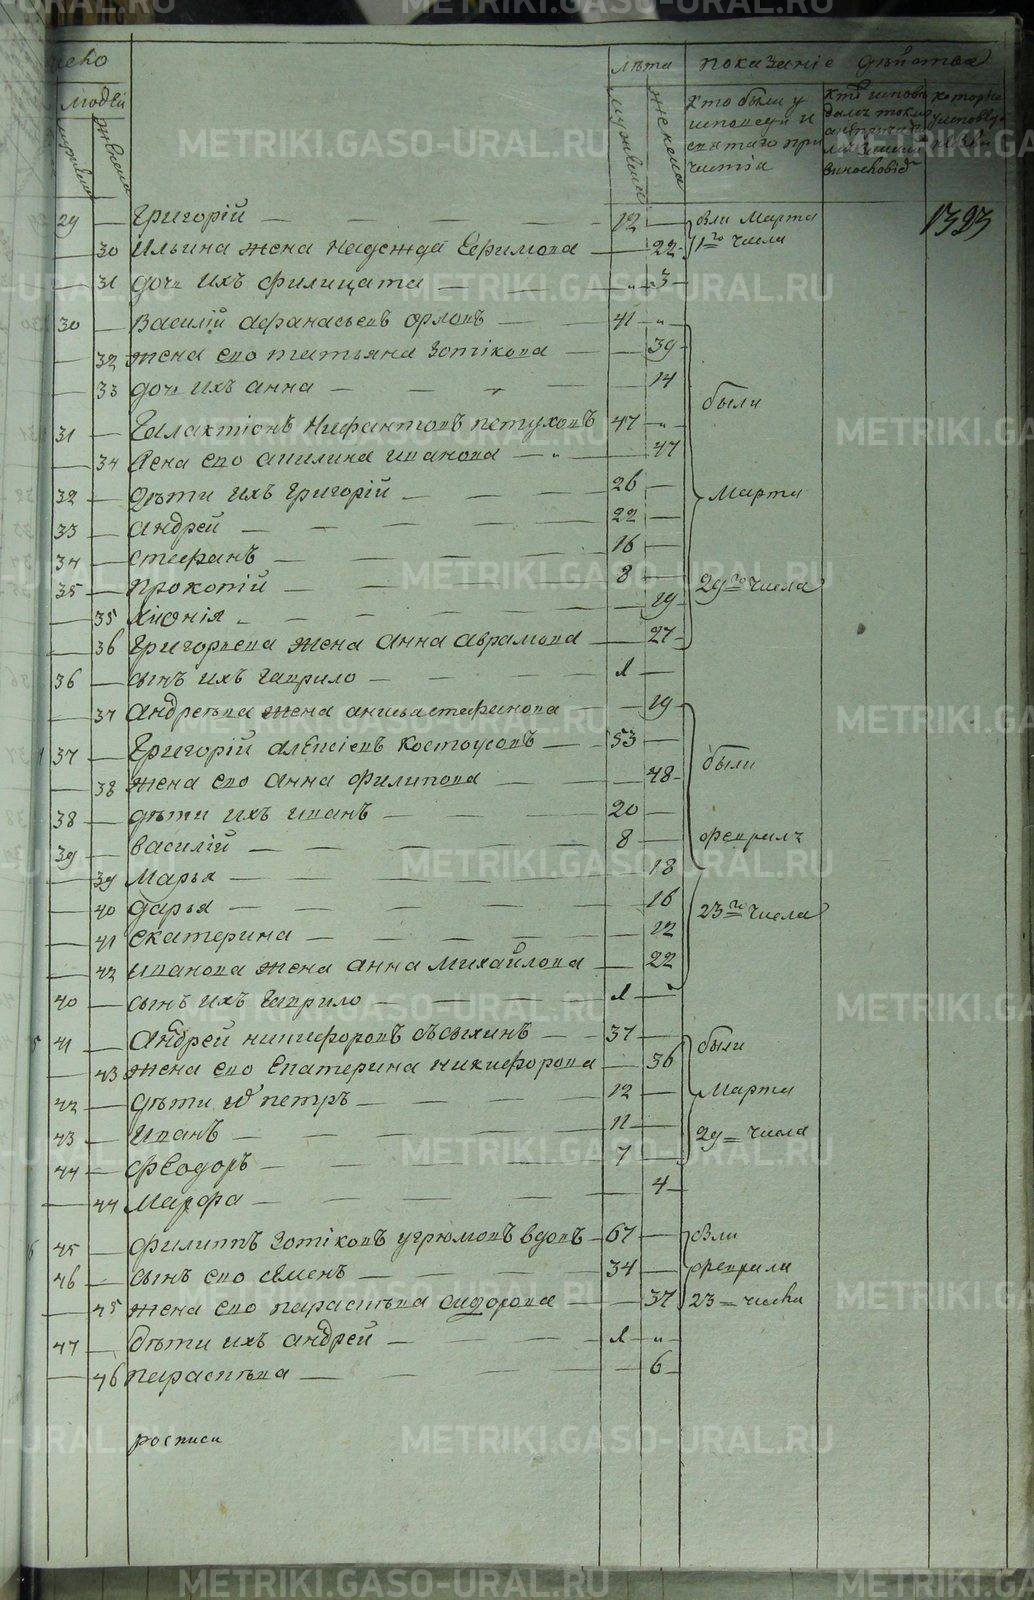 лѣта показанiе дѣйства
людей
мужеска женска
кто были у исповеди и святаго при частiя
29 Григорiй 12 были Марта 1393
30 Ильина жена Надежда Ефимова 22 11го числа
31 дочь ихъ Филицата 3
30 Василiй Афанасьевъ Орловъ 41
32 жена ево татьяна Зотiкова 39
33 дочь ихъ анна 14
были
31 Галактiонъ Нифантовъ петуховъ 47
34 жена ево акилина иванова 47
32 дѣти ихъ григорiй 26 Марта
33 андрей 22
34 стефанъ 16
35 прокопiй 8 29го числа
35 Хiонiя 19
36 григорьева жена анна аврамова 27
36 сынъ ихъ гаврило 1
37 андреева жена анисья стефанова 19
37 Григорiй алексiевъ костоусовъ 53 были
38 жена ево анна филипова 48
38 дѣти ихъ иванъ 20
39 василiй 8 февраля
39 Марья 18
40 дарья 16 23го числа
41 екатерина 12
42 иванова жена анна михайлова 22
40 сынъ ихъ гаврило 1
41 Андрей никифоровъ 37 были
43 жена ево екатерина никифорова 36
42 дѣти их петръ 12 Марта
43 иванъ 11 29 числа
44 феодоръ 7
44 марфа 4
45 филиппъ Зотiковъ угрюмовъ вдовъ 67 были
46 сынъ ево семенъ 34 февраля
45 жена ево парасковья сидорова 37 23 числа
47 дѣти ихъ андрей 1
46 парасковья 6
росписи
METRIKI.GASO-URAL.RU